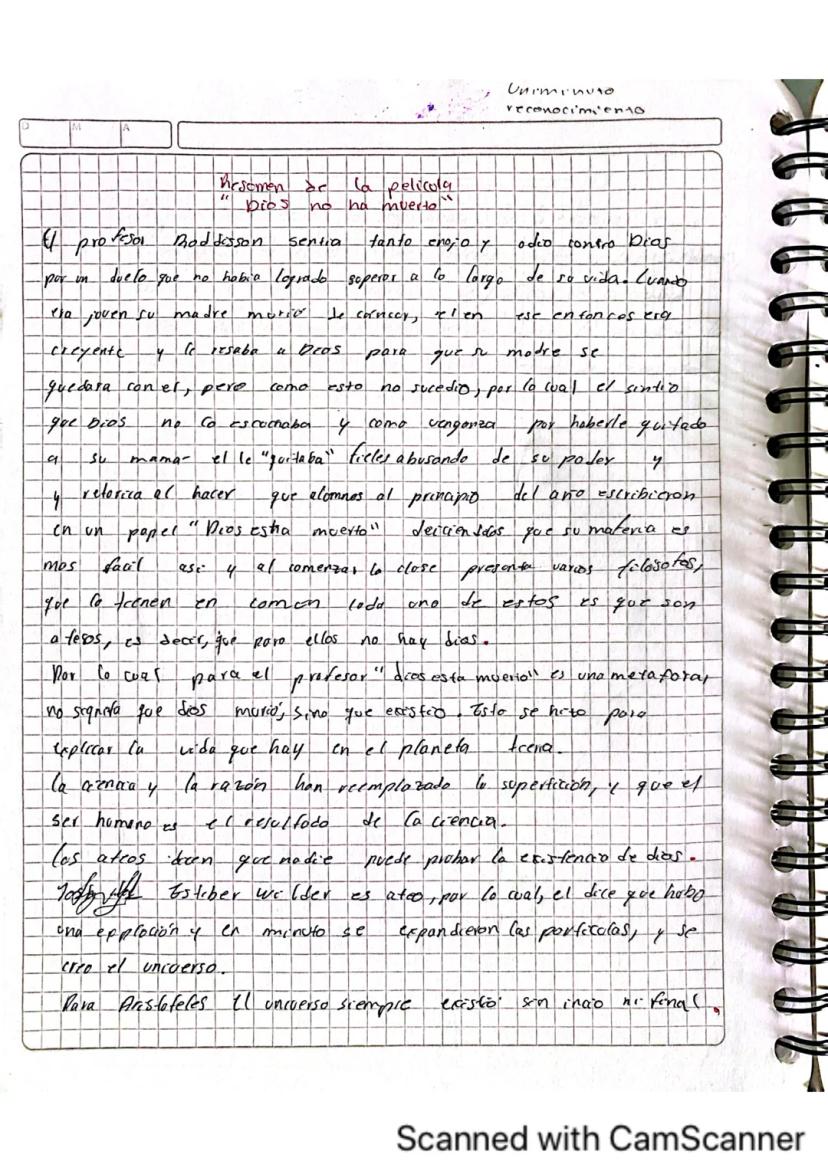 Uniminuto
reconocimiento
D M A
Resomen de la pelicula
"Dios no ha muerto"
El profesor Raddisson sentia tanto enojo y odio contra Dios
por un duelo que no habia logrado superar a lo largo de su vida. Cuando
era joven su madre murio de cancer, el en ese entonces era
creyente y le resaba a Dios para que su madre se
quedara con el, pero como esto no sucedio, por lo cual el sintio
que Dios no lo escuchaba y como venganza por haberle quitado
a su mama- el le "quitaba" fieles abusando de su poder y
y retorica al hacer que alomnos al principio del año escribieron
en un papel "Dios estha muerto" que su materia es
mas facil asi y al comenzar la clase presenta varios filosofos,
que lo tienen en comon cada uno de estos es que son
ateos, es decir, que para ellos no hay dios.
Por lo cual para el profesor "dios esta muerto" es una metafora,
no que dios murio, sino que existio. Esto se hizo para
explicar la vida que hay en el planeta tierra.
la ciencia y la razón han reemplazado la superticion, y que el
ser humano es el resultado de la ciencia.
Los ateos dicen que nadie puede probar la existencia de dios.
Estiber wilder es ateo, por lo cual, el dice que hubo
una explocion y en minuto se expandieron las particolas, y se
creo el universo.
Para Aristoteles El universo siempre existio sin inicio ni final.
Scanned with CamScanner